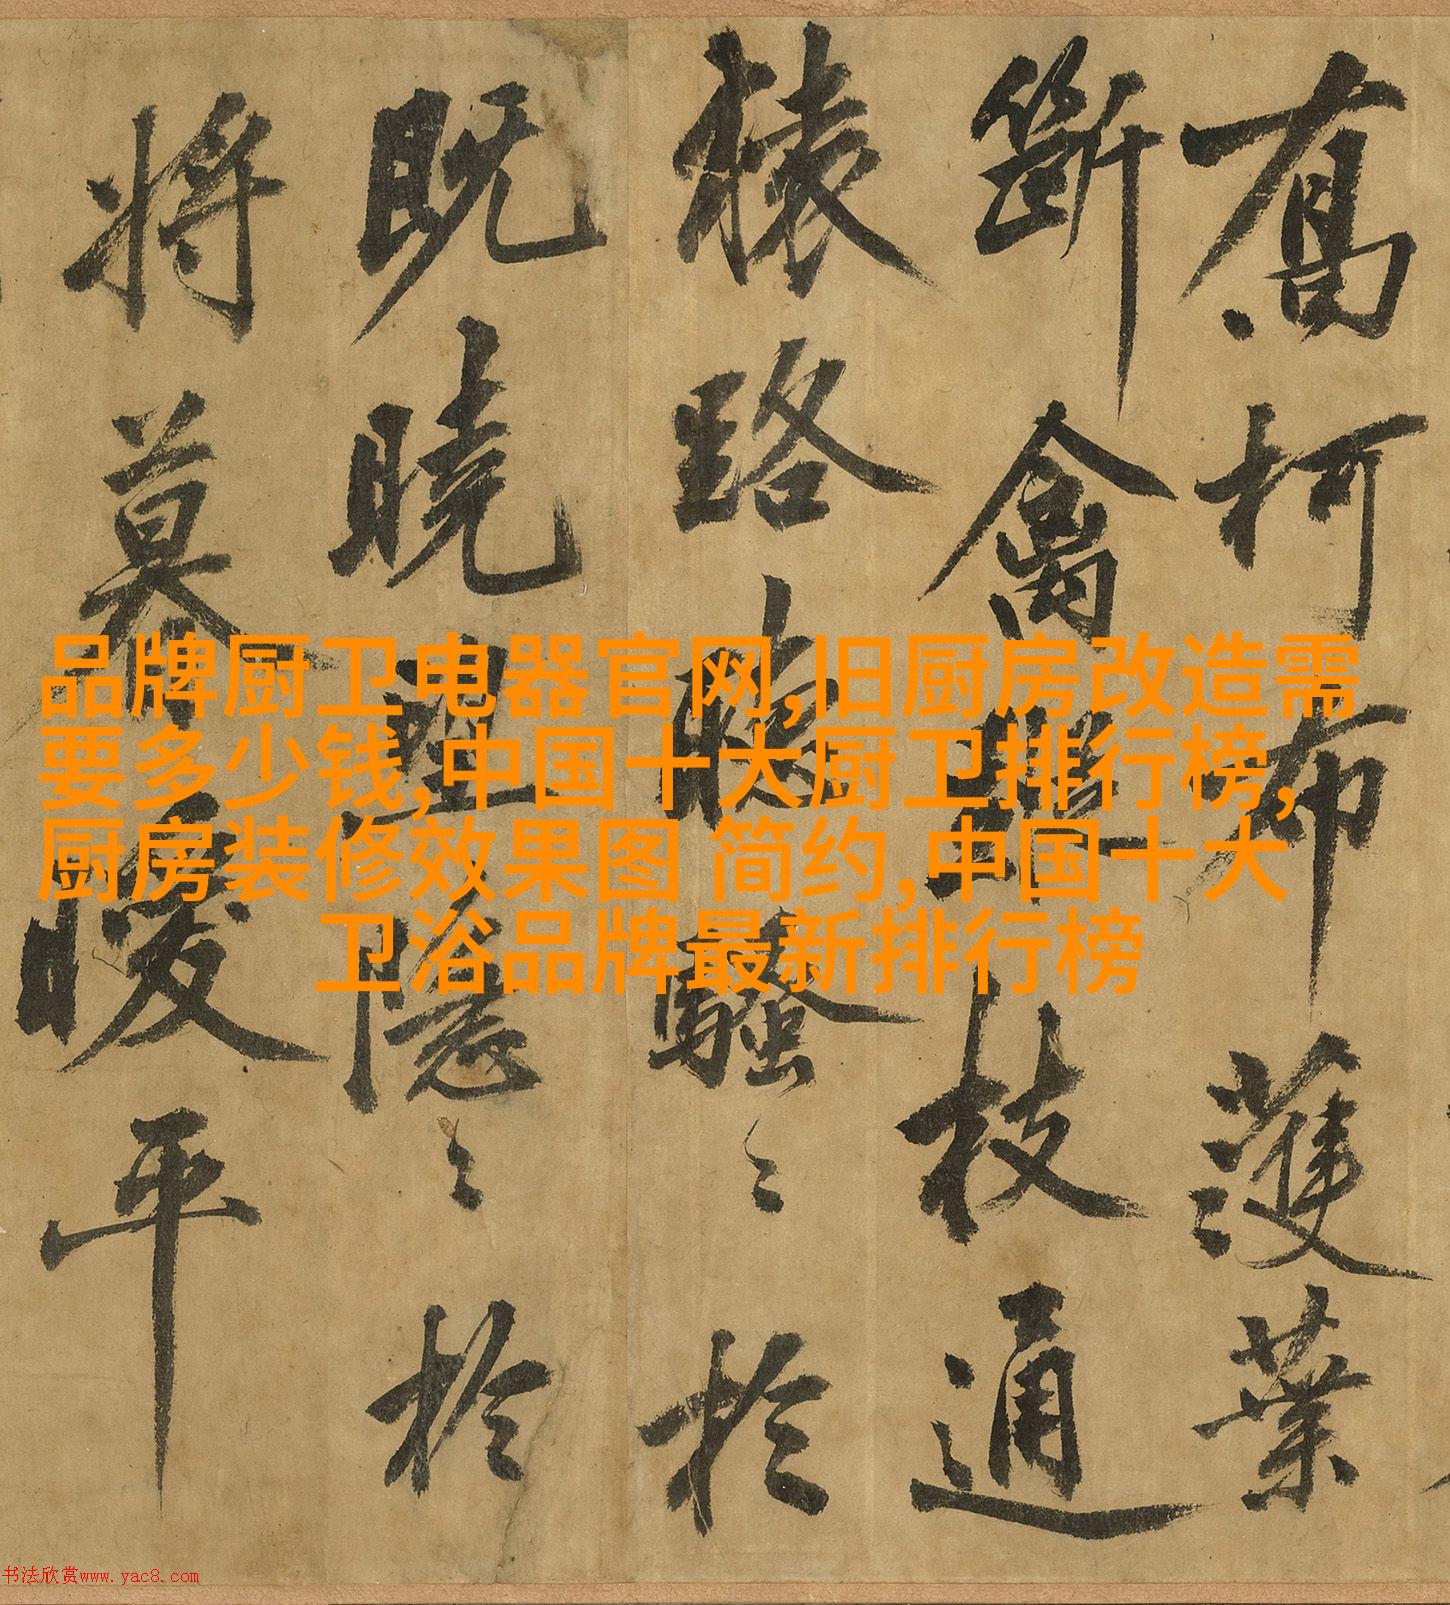 喬柯布濩葉
斷禽蹤枝通
猨路聽騷〻於
既曉望隱〻於
將暮暖平
品牌厨卫电器官网,旧厨房改造需
要多少钱,中国十大厨卫排行榜,
厨房装修效果图 简约,中国十大
卫浴品牌最新排行榜
书法欣赏www.yac8.com